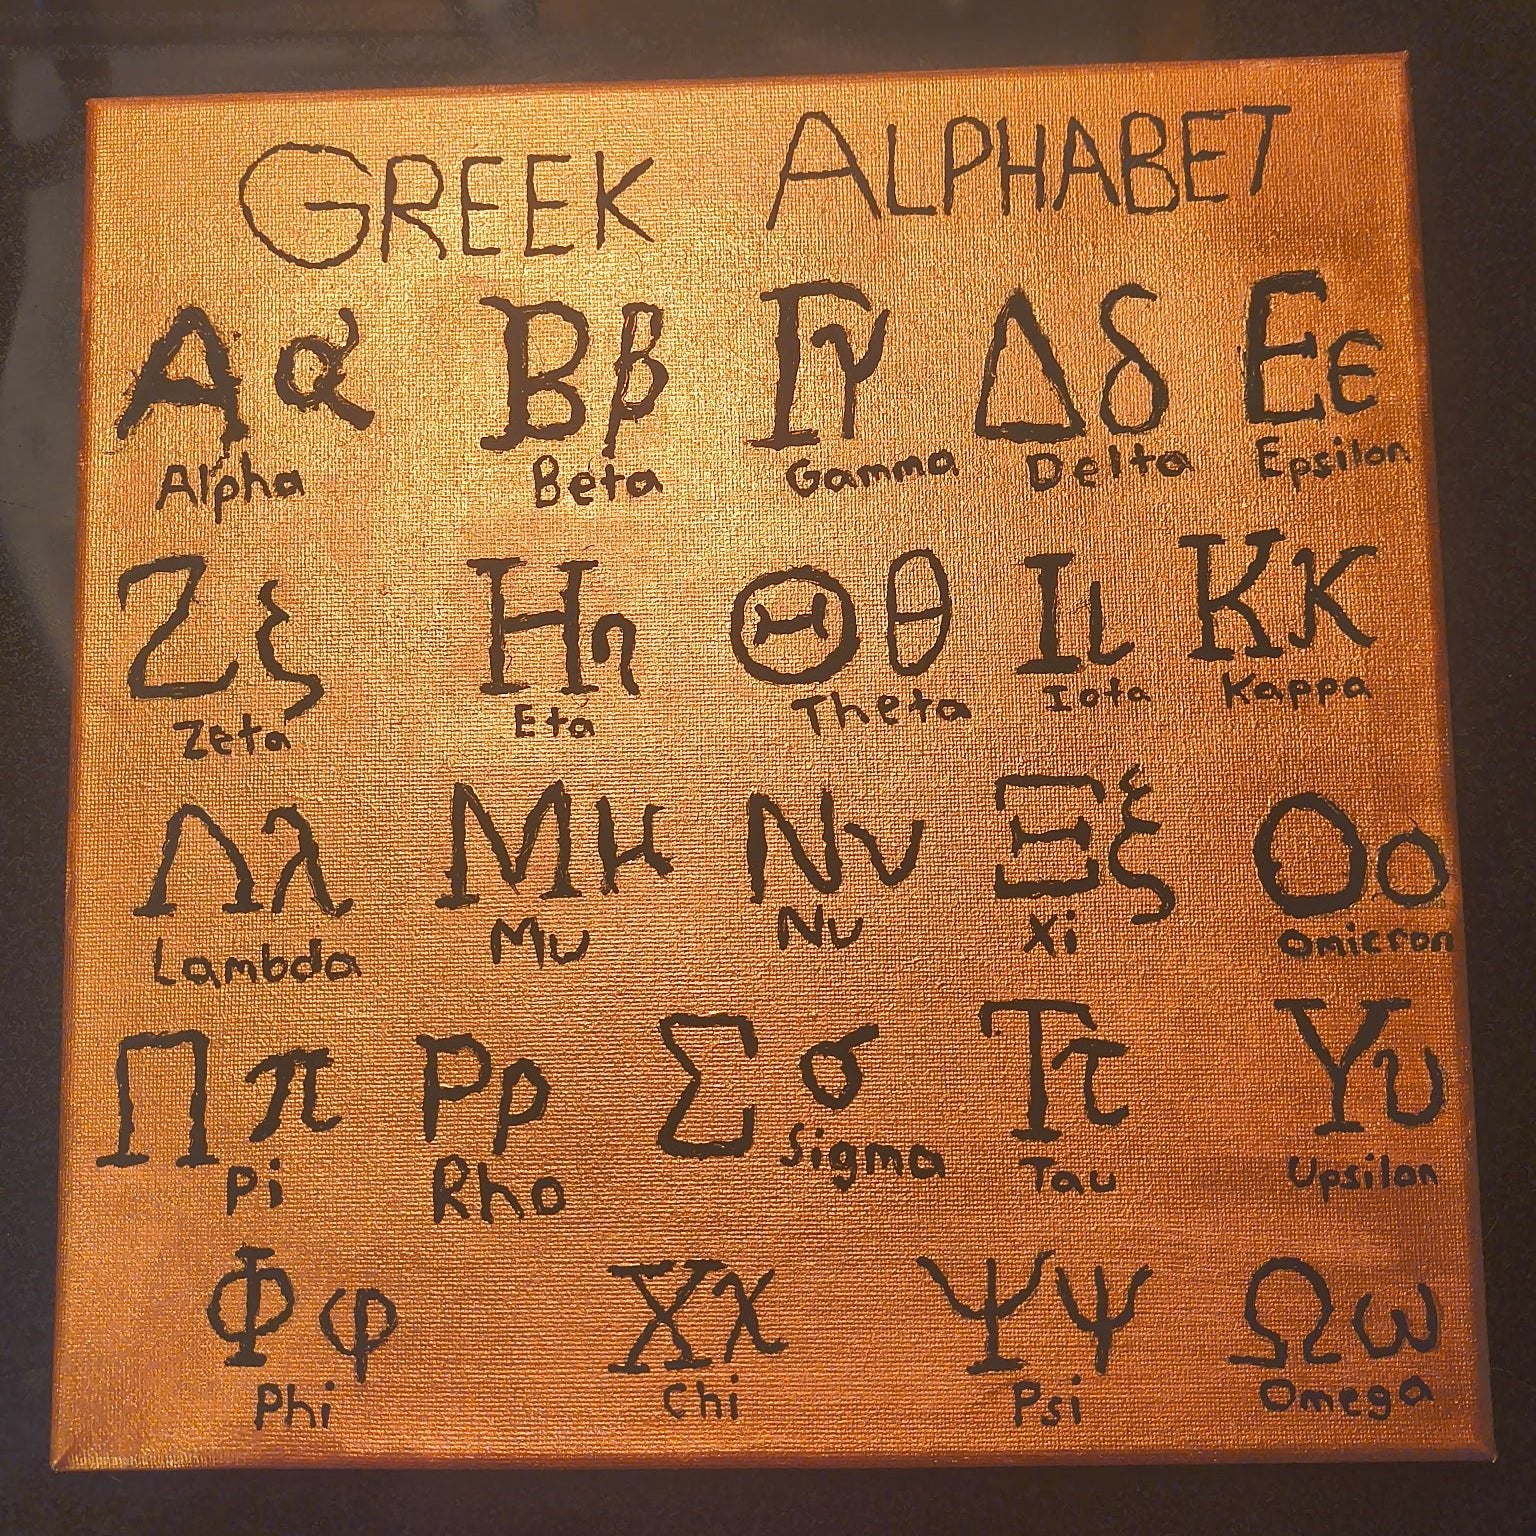 GREEK ALPHABET
Αα Ββ Γγ Δδ Εε
Alpha Beta Gamma Delta Epsilon
Ζξ Ηη Θθ Ιι Κκ
Zeta Eta Theta Iota Kappa
Λλ Μμ Νν Ξξ Οο
Lambda Mu Nu Xi Omicron
Ππ Ρρ Σσ Ττ Υυ
Pi Rho Sigma Tau Upsilon
Φφ Χχ Ψψ Ωω
Phi Chi Psi Omega